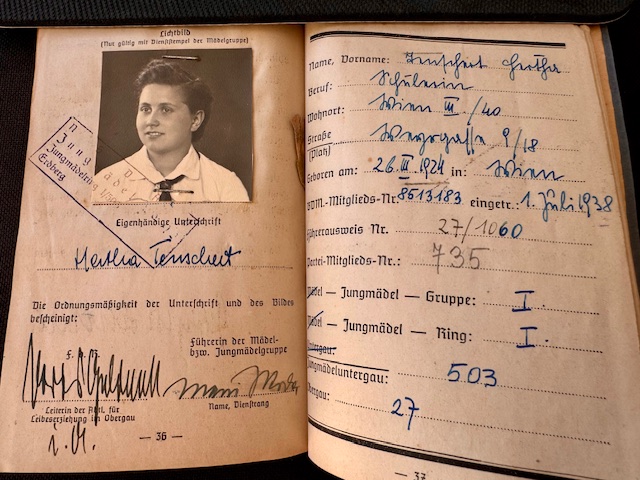 Lichtbild
(Nur gültig mit Dienststempel der Mädelgruppe)
Jungmädelring
Erdberg
Eigenhändige Unterschrift
Hertha Tenschert
Die Ordnungsmäßigkeit der Unterschrift und des Bildes
bescheinigt:
Führerin der Mädel-
bzw. Jungmädelgruppe
Leiterin der Abt. für
Leibeserziehung im Obergau
Name, Dienstrang
i. A.
— 36 —
Name, Vorname: Tenschert Hertha
Beruf: Schülerin
Wohnort: Wien III /40
Straße 9/18
(Platz)
Geboren am: 26. III 1924 in: Wien
BDM.-Mitglieds-Nr. 8613183 eingetr.: 1. Juli 1938
Führerausweis Nr. 27/1060
Partei-Mitglieds-Nr.: 735
Mädel — Jungmädel — Gruppe: I.
Mädel — Jungmädel — Ring: I.
Untergau:
Jungmädeluntergau: 503
Obergau: 27
— 37